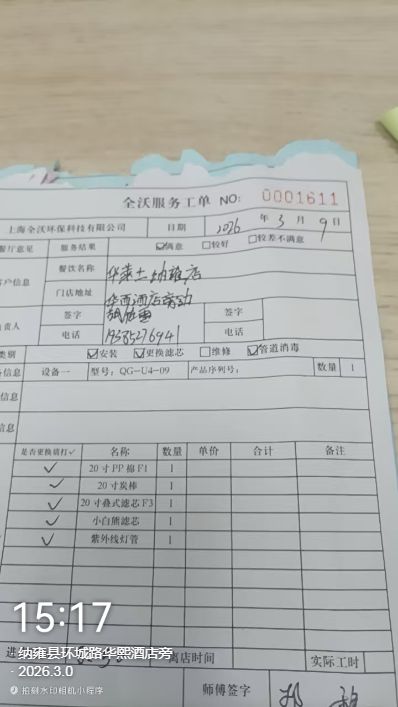 全沃服务工单 NO: 0001611
上海全沃环保科技有限公司 日期 2026 年 3 月 9 日
餐厅意见 服务结果 ☑满意 □较好 □较差不满意
客户信息 餐饮名称 华莱士纳雍店
门店地址 华西酒店旁边
负责人 签字 签字
电话 电话
类别 ☑安装 ☑更换滤芯 □维修 ☑管道消毒
备信息 设备一 型号: QG-U4-09 产品序列号: 数量 1
信息
信息
是否更换请打✓ 名称 数量 单价 合计 备注
✓ 20寸PP棉F1 1
✓ 20寸炭棒 1
✓ 20寸叠式滤芯F3 1
✓ 小白熊滤芯 1
✓ 紫外线灯管 1
15:17
纳雍县环城路华熙酒店旁
· 2026.3.0
拍刻水印相机小程序
进 离店时间 实际工时
师傅签字